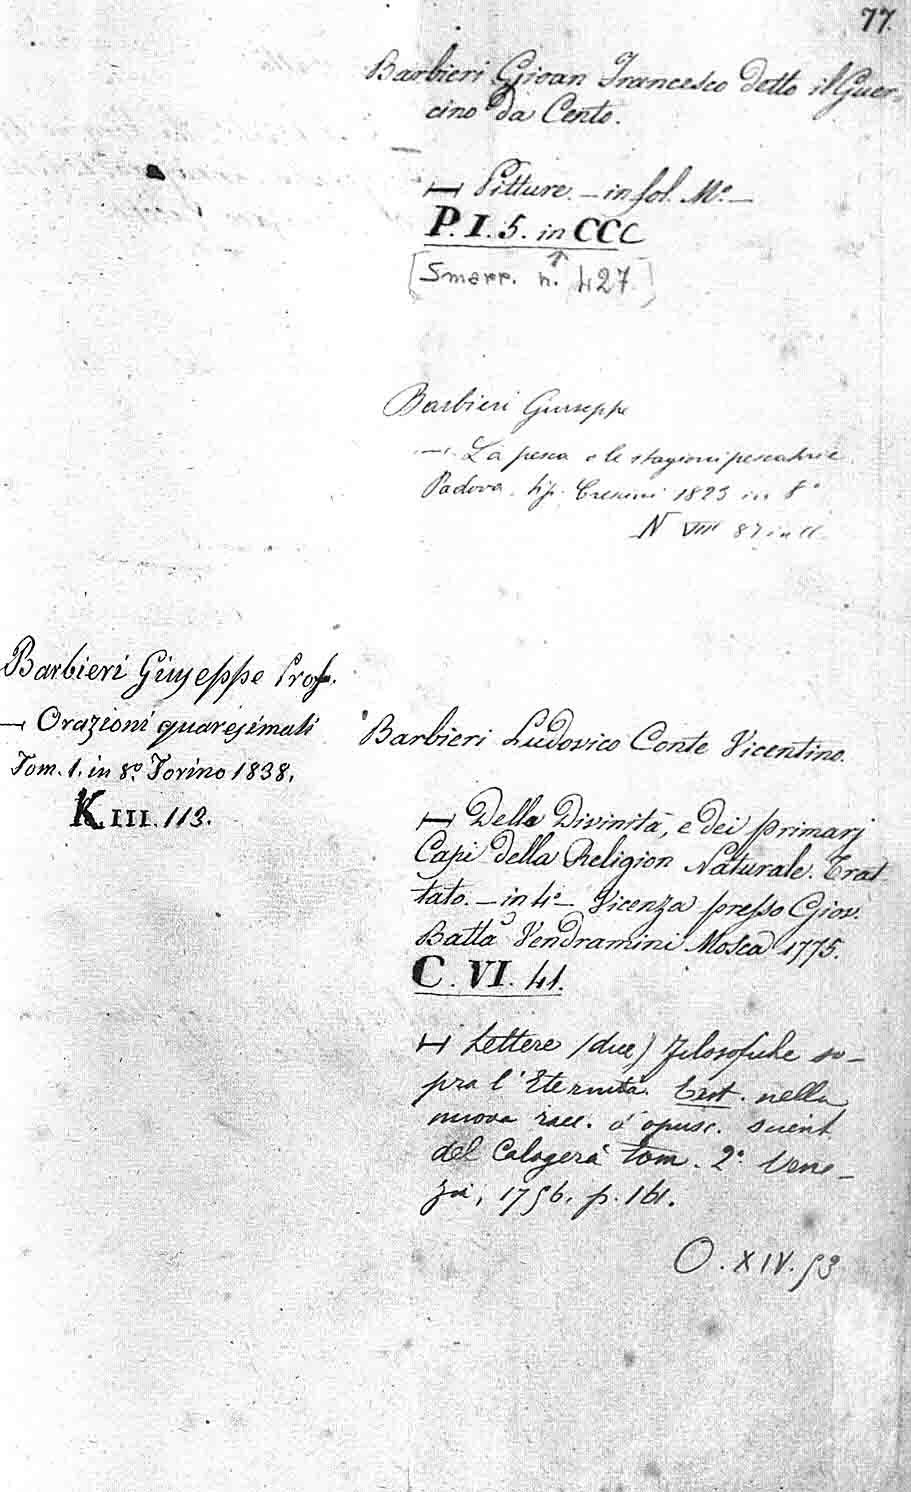 77.
Barbieri Gioan Francesco detto il Guer-
cino da Cento.
— Pitture. — in fol. Mo. —
P. I. 5. in CCC
[Smarr. n. 427]
Barbieri Giuseppe
— La pesca e le stagioni pescatrici
Padova. tip. Crescini 1823 in 8o
N VIII 87 in
Barbieri Giuseppe Prof.
— Orazioni quaresimali
Tom. 1. in 8o. Torino 1838.
K. III. 113.
Barbieri Ludovico Conte Vicentino.
— Della Divinità, e dei primarj
Capi della Religion Naturale. Trat
tato. — in 4o — Vicenza presso Giov.
Batta Vendramini Mosca 1775.
C. VI. 41.
— Lettere (due) filosofiche so-
pra l'Eternità. Exst. nella
nuova racc. d'opusc. scient
del Calogerà tom. 2o. Vene-
zia, 1756. p. 161.
O. XIV. 53